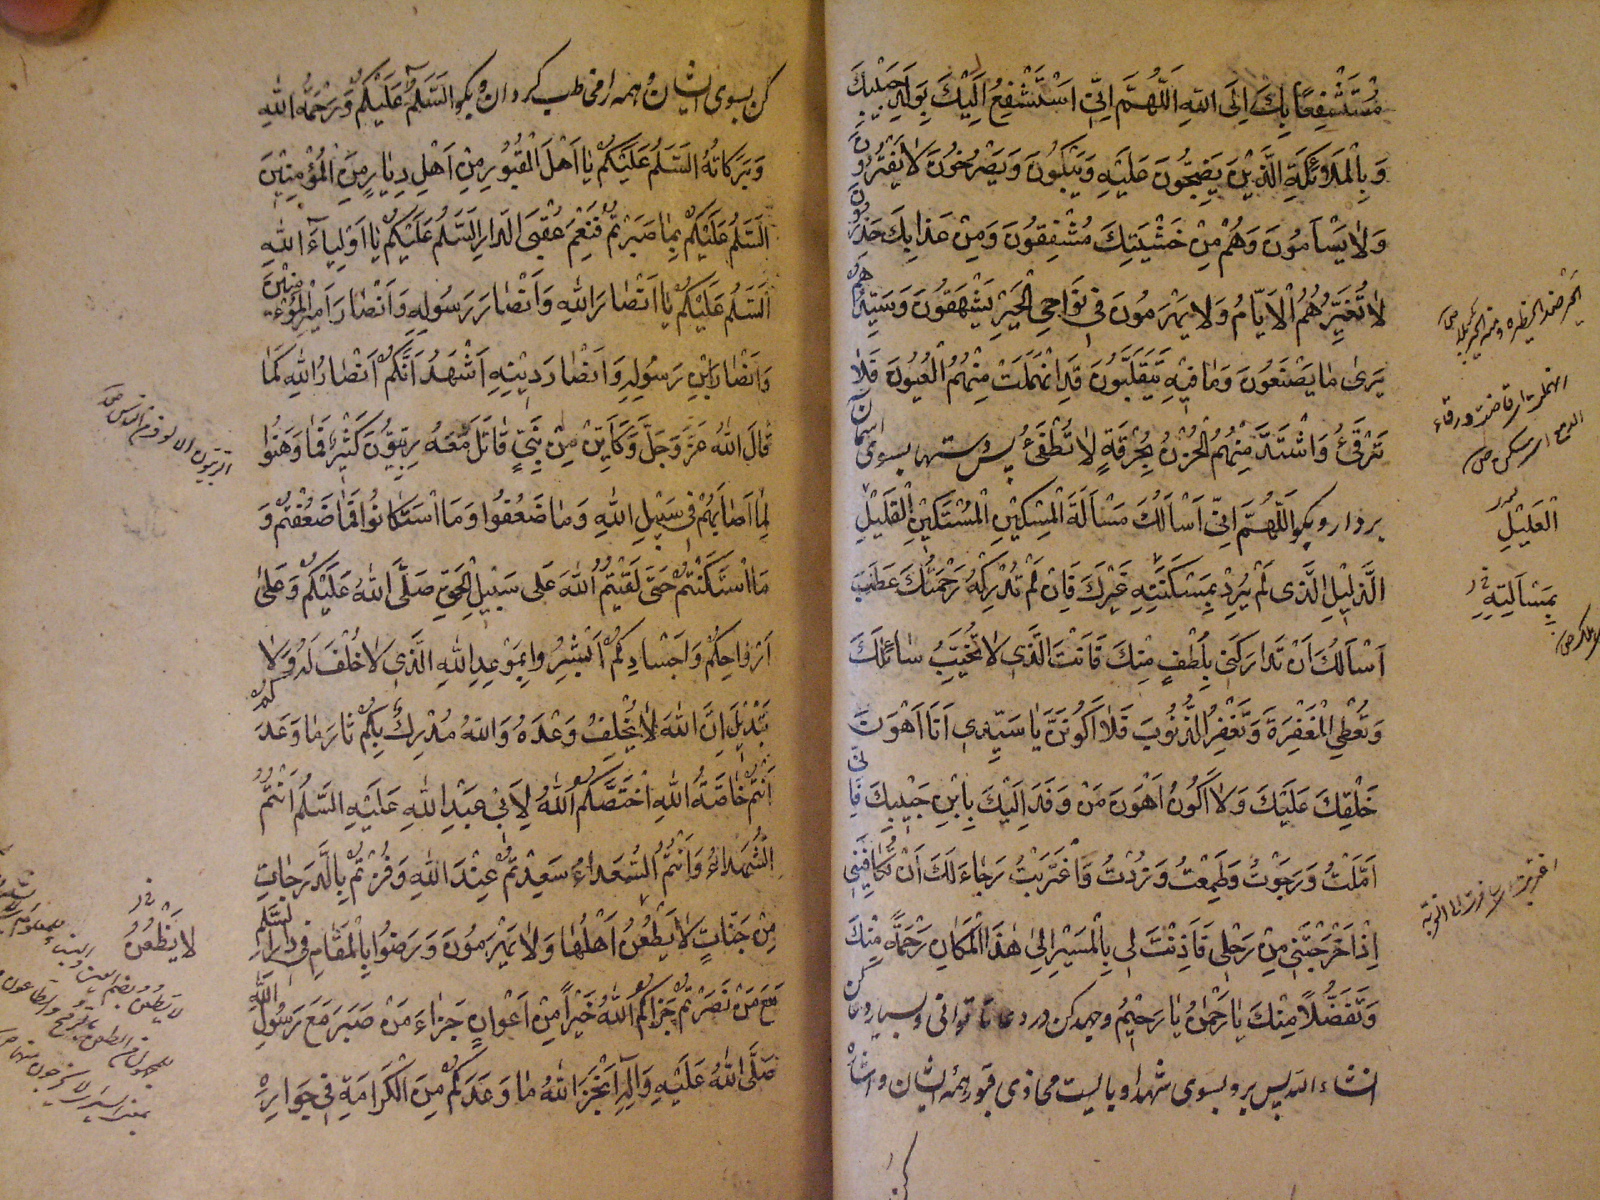 مُسْتَشْفِعًا بِكَ اِلَى اللهِ اَللّٰهُمَّ اِنّى اَسْتَشْفِعُ اِلَيْكَ بِوَلَدِ حَبيْبِكَ
وَبِالْمَلٰٓئِكَةِ الَّذيْنَ يَضِجُّونَ عَلَيْهِ وَيَبْكُونَ وَيَصْرُخُونَ لٰا يَفْتُرُونَ
وَلٰا يَسْأَمُونَ وَهُمْ مِنْ خَشْيَتِكَ مُشْفِقُونَ وَمِنْ عَذابِكَ حَذِرُونَ
لٰا تُغَيِّرُهُمُ الْاَيّامُ وَلٰا يَهْرَمُونَ فى نَوٰاحِى الْحَيْرِ يَشْهَقُونَ وَسَيِّدُهُمْ
يَرىٰ مٰا يَصْنَعُونَ وَمٰا فيْهِ يَتَقَلَّبُونَ قَدِ انْهَمَلَتْ مِنْهُمُ الْعُيُونُ فَلٰا
تَرْقَئُ وَاشْتَدَّ مِنْهُمُ الْحُزْنُ بِحُرْقَةٍ لٰا تُطْفَئُ پس دستها بسوى آسمان
بردار و بكو اَللّٰهُمَّ اِنّى اَسْأَلُكَ مَسْأَلَةَ الْمِسْكيْنِ الْمُسْتَكيْنِ الْقَليْلِ
الَّذليْلِ الَّذى لَمْ يُرِدْ بِمَسْكَنَتِهِ غَيْرَكَ فَاِنْ لَمْ تُدْرِكْهُ رَحْمَتُكَ عَطِبَ
اَسْأَلُكَ اَنْ تَدٰارَكَنى بِلُطْفٍ مِنْكَ فَاَنْتَ الَّذى لٰا تُخَيِّبُ سٰائِلَكَ
وَتُعْطِى الْمَغْفِرَةَ وَتَغْفِرُ الذُّنُوبَ فَلٰا اَكُونَنَّ يٰا سَيِّدى اَنَا اَهْوَنَ
خَلْقِكَ عَلَيْكَ وَلٰا اَكُونُ اَهْوَنَ مَنْ وَفَدَ اِلَيْكَ بِابْنِ حَبيْبِكَ فَاِنّى
اَمَّلْتُ وَرَجَوْتُ وَطَمِعْتُ وَزُرْتُ وَاغْتَرَبْتُ رَجٰاءً لَكَ اَنْ تُكٰافِيَنى
اِذْ اَخْرَجْتَنى مِنْ رَحْلى فَاَذِنْتَ لى بِالْمَسيْرِ اِلىٰ هٰذَا الْمَكٰانِ رَحْمَةً مِنْكَ
وَتَفَضُّلًا مِنْكَ يٰا رَحْمٰنُ يٰا رَحيْمُ وجهد كن در دعا تا توانى و بسيار دعا كن
انشاء الله پس برو بسوى شهدا و بايست محاذى قبور همه ايشان و اشاره
الْعَليْلِ
بِمَسْأَلَتِهِ
كن بسوى ايشان و همه را مخاطب كردان و بكو اَلسَّلٰمُ عَلَيْكُمْ وَرَحْمَةُ اللهِ
وَبَرَكٰاتُهُ اَلسَّلٰمُ عَلَيْكُمْ يٰا اَهْلَ الْقُبُورِ مِنْ اَهْلِ دِيٰارٍ مِنَ الْمُؤْمِنيْنَ
اَلسَّلٰمُ عَلَيْكُمْ بِمٰا صَبَرْتُمْ فَنِعْمَ عُقْبَى الدّارِ اَلسَّلٰمُ عَلَيْكُمْ يٰا اَوْلِيٰاءَ اللهِ
اَلسَّلٰمُ عَلَيْكُمْ يٰا اَنْصٰارَ اللهِ وَاَنْصٰارَ رَسُولِهِ وَاَنْصٰارَ اَميْرِ الْمُؤْمِنيْنَ
وَاَنْصٰارَ ابْنِ رَسُولِهِ وَاَنْصٰارَ ديْنِهِ اَشْهَدُ اَنَّكُمْ اَنْصٰارُ اللهِ كَمٰا
قٰالَ اللهُ عَزَّ وَجَلَّ وَكَاَيِّنْ مِنْ نَبِىٍّ قٰاتَلَ مَعَهُ رِبِّيُّونَ كَثيْرٌ فَمٰا وَهَنُوا
لِمٰا اَصٰابَهُمْ فى سَبيْلِ اللهِ وَمٰا ضَعُفُوا وَمَا اسْتَكٰانُوا فَمٰا ضَعُفْتُمْ وَ
مَا اسْتَكَنْتُمْ حَتّى لَقيْتُمُ اللهَ عَلى سَبيْلِ الْحَقِّ صَلَّى اللهُ عَلَيْكُمْ وَعَلىٰ
اَرْوٰاحِكُمْ وَاَجْسٰادِكُمْ اَبْشِرُوا بِمَوْعِدِ اللهِ الَّذى لٰا خُلْفَ لَهُ وَلٰا
تَبْديْلَ اِنَّ اللهَ لٰا يُخْلِفُ وَعْدَهُ وَاللهُ مُدْرِكٌ بِكُمْ ثٰارَ مٰا وَعَدَكُمْ
اَنْتُمْ خٰاصَّةُ اللهِ اخْتَصَّكُمُ اللهُ لِاَبى عَبْدِ اللهِ عَلَيْهِ السَّلٰمُ اَنْتُمُ
الشُّهَدٰاءُ وَاَنْتُمُ السُّعَدٰاءُ سَعِدْتُمْ عِنْدَ اللهِ وَفُزْتُمْ بِالدَّرَجٰاتِ
مِنْ جَنّٰاتٍ لٰا يَطْعُنُ اَهْلُهٰا وَلٰا يَهْرَمُونَ وَرَضُوا بِالْمَقٰامِ فى دٰارِ السَّلٰمِ
مَعَ مَنْ نَصَرْتُمْ جَزٰاكُمُ اللهُ خَيْراً مِنْ اَعْوٰانٍ جَزٰاءَ مَنْ صَبَرَ مَعَ رَسُولِ اللهِ
صَلَّى اللهُ عَلَيْهِ وَآلِهِ اَنْجَزَ اللهُ مٰا وَعَدَكُمْ مِنَ الْكَرٰامَةِ فى جِوٰارِهِ
لٰا يَظْعُنُ